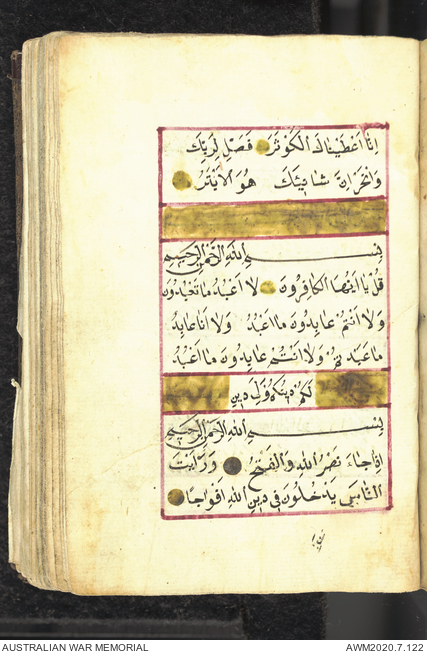 انا اعطيناك الكوثر فصل لربك
وانحر ان شانئك هو الابتر
بسم الله الرحمن الرحيم
قل يا ايها الكافرون لا اعبد ما تعبدون
ولا انتم عابدون ما اعبد ولا انا عابد
ما عبدتم ولا انتم عابدون ما اعبد
لكم دينكم ولي دين
بسم الله الرحمن الرحيم
اذا جاء نصر الله والفتح ورايت
الناس يدخلون في دين الله افواجا
AUSTRALIAN WAR MEMORIAL
AWM2020.7.122